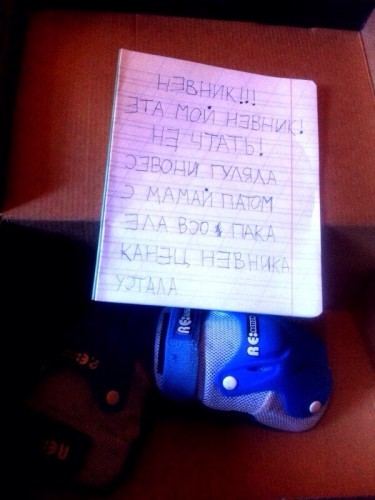 НЭВНИК!!!
ЭТА МОЙ НЭВНИК!
НЕ ЧТАТЬ!
СЭВОНИ ГУЛЯЛА
С МАМАЙ ПАТОМ
ЭЛА ВСО ПАКА
КАНЕЦ НЭВНИКА
УСТАЛА
RE:
RE: